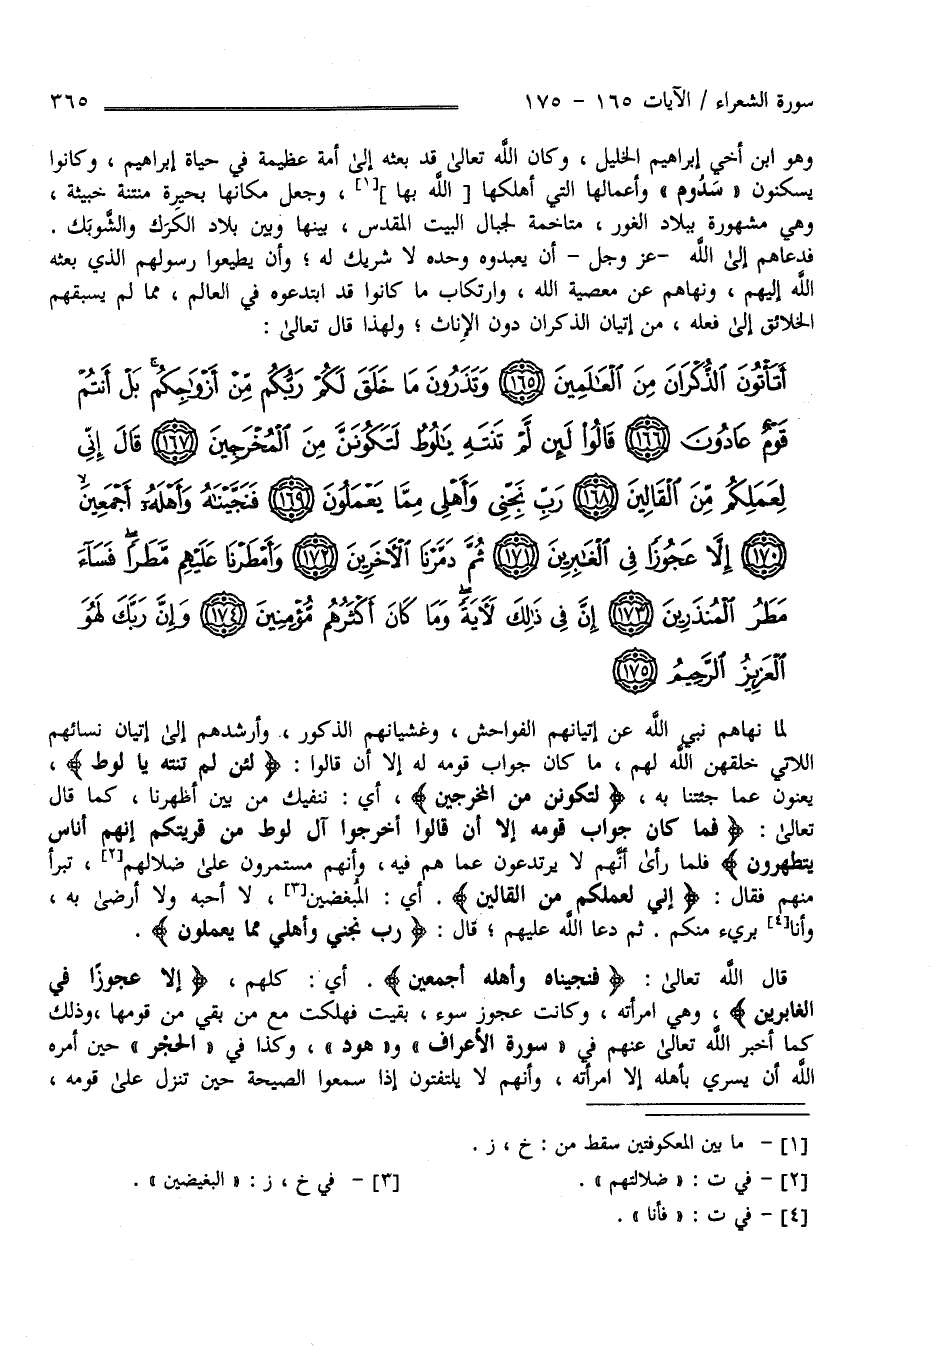 سورة الشعراء / الآيات ١٦٥ – ١٧٥ ٣٦٥
وهو ابن أخي إبراهيم الخليل ، وكان اللَّه تعالىٰ قد بعثه إلىٰ أمة عظيمة في حياة إبراهيم ، وكانوا
يسكنون « سَدُوم » وأعمالها التي أهلكها [ اللَّه بها ][١] ، وجعل مكانها بحيرة منتنة خبيثة ،
وهي مشهورة ببلاد الغور ، متاخمة لجبال البيت المقدس ، بينها وبين بلاد الكَرَك والشَّوبَك .
فدعاهم إلىٰ اللَّه –عز وجل – أن يعبدوه وحده لا شريك له ؛ وأن يطيعوا رسولهم الذي بعثه
اللَّه إليهم ، ونهاهم عن معصية الله ، وارتكاب ما كانوا قد ابتدعوه في العالم ، مما لم يسبقهم
الخلائق إلىٰ فعله ، من إتيان الذكران دون الإناث ؛ ولهذا قال تعالىٰ :
أَتَأْتُونَ ٱلذُّكْرَانَ مِنَ ٱلْعَٰلَمِينَ ١٦٥ وَتَذَرُونَ مَا خَلَقَ لَكُمْ رَبُّكُم مِّنْ أَزْوَٰجِكُمۚ بَلْ أَنتُمْ
قَوْمٌ عَادُونَ ١٦٦ قَالُوا۟ لَئِن لَّمْ تَنتَهِ يَٰلُوطُ لَتَكُونَنَّ مِنَ ٱلْمُخْرَجِينَ ١٦٧ قَالَ إِنِّى
لِعَمَلِكُم مِّنَ ٱلْقَالِينَ ١٦٨ رَبِّ نَجِّنِى وَأَهْلِى مِمَّا يَعْمَلُونَ ١٦٩ فَنَجَّيْنَٰهُ وَأَهْلَهُۥٓ أَجْمَعِينَۙ
١٧٠ إِلَّا عَجُوزًا فِى ٱلْغَٰبِرِينَ ١٧١ ثُمَّ دَمَّرْنَا ٱلْأَخَرِينَ ١٧٢ وَأَمْطَرْنَا عَلَيْهِم مَّطَرًاۖ فَسَآءَ
مَطَرُ ٱلْمُنذَرِينَ ١٧٣ إِنَّ فِى ذَٰلِكَ لَأَيَةًۖ وَمَا كَانَ أَكْثَرُهُم مُّؤْمِنِينَ ١٧٤ وَإِنَّ رَبَّكَ لَهُوَ
ٱلْعَزِيزُ ٱلرَّحِيمُ ١٧٥
لما نهاهم نبي اللَّه عن إتيانهم الفواحش ، وغشيانهم الذكور ، وأرشدهم إلىٰ إتيان نسائهم
اللاتي خلقهن اللَّه لهم ، ما كان جواب قومه له إلا أن قالوا : ﴿ لئن لم تنته يا لوط ﴾ ،
يعنون عما جئتنا به ، ﴿ لتكونن من المخرجين ﴾ ، أي : ننفيك من بين أظهرنا ، كما قال
تعالىٰ : ﴿ فما كان جواب قومه إلا أن قالوا أخرجوا آل لوط من قريتكم إنهم أناس
يتطهرون ﴾ فلما رأىٰ أنَّهم لا يرتدعون عما هم فيه ، وأنهم مستمرون علىٰ ضلالهم[٢] ، تبرأ
منهم فقال : ﴿ إني لعملكم من القالين ﴾ . أي : المُبغضين[٣] ، لا أحبه ولا أرضىٰ به ،
وأنا[٤] بريء منكم . ثم دعا اللَّه عليهم ؛ قال : ﴿ رب نجني وأهلي مما يعملون ﴾ .
قال اللَّه تعالىٰ : ﴿ فنجيناه وأهله أجمعين ﴾ . أي : كلهم ، ﴿ إلا عجوزًا في
الغابرين ﴾ ، وهي امرأته ، وكانت عجوز سوء ، بقيت فهلكت مع من بقي من قومها ،وذلك
كما أخبر اللَّه تعالىٰ عنهم في « سورة الأعراف » و« هود » ، وكذا في « الحجْر » حين أمره
اللَّه أن يسري بأهله إلا امرأته ، وأنهم لا يلتفتون إذا سمعوا الصيحة حين تنزل علىٰ قومه ،
[١] – ما بين المعكوفتين سقط من : خ ، ز .
[٢] – في ت : « ضلالتهم » . [٣] – في خ ، ز : « البغيضين » .
[٤] – في ت : « فأنا » .